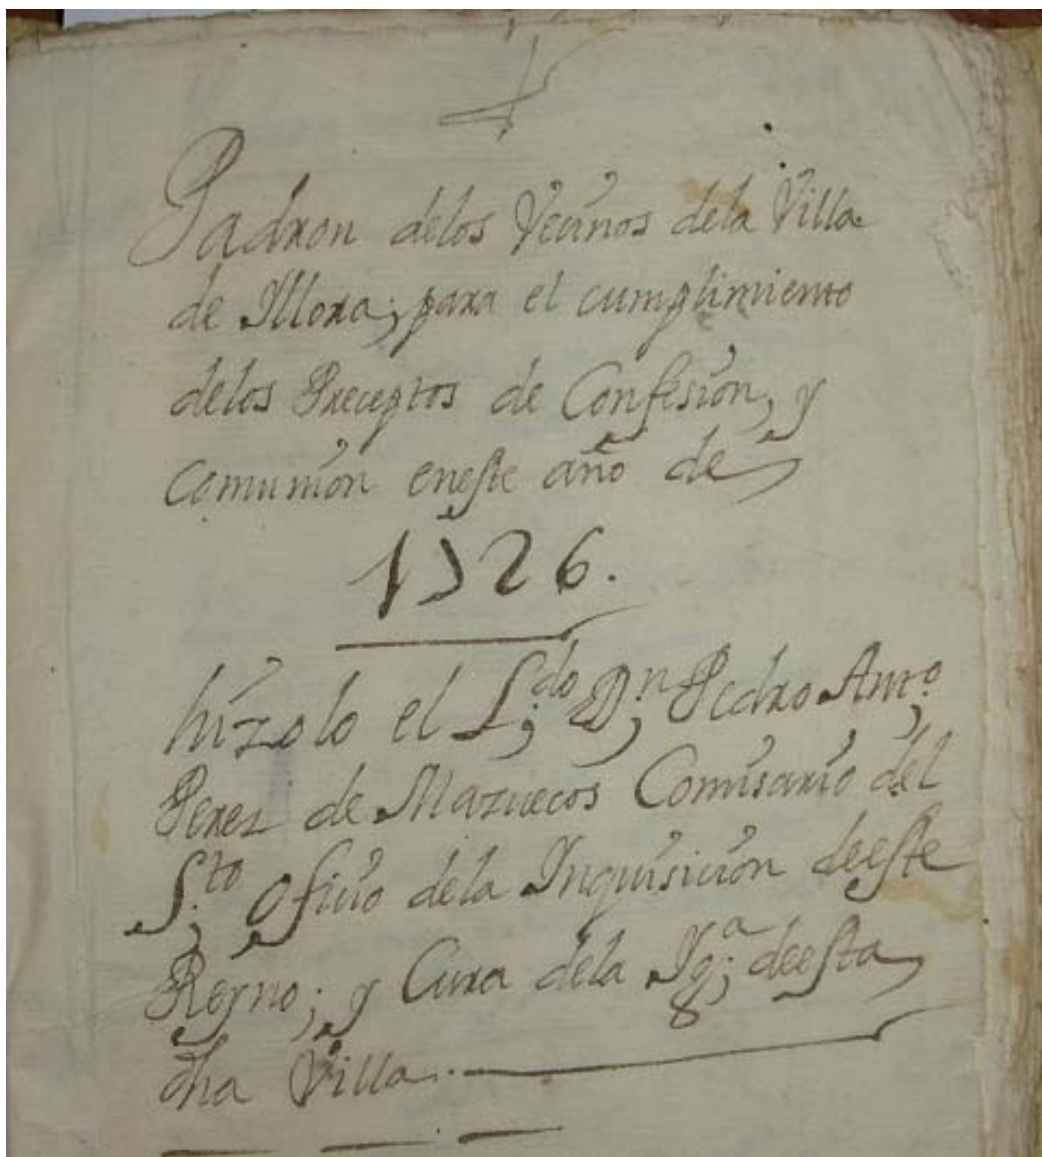 Padron delos Vecinos dela Villa
de Illora; para el cumplimiento
delos Preceptos de Confesion, y
Comunion eneste año de
1726.
hizolo el L.do D.n Pedro Ant.o
Perez de Mazuecos Comisario del
S.to Oficio dela Inquisicion deeste
Reyno; y Cura dela Ygª deesta
dha Villa.